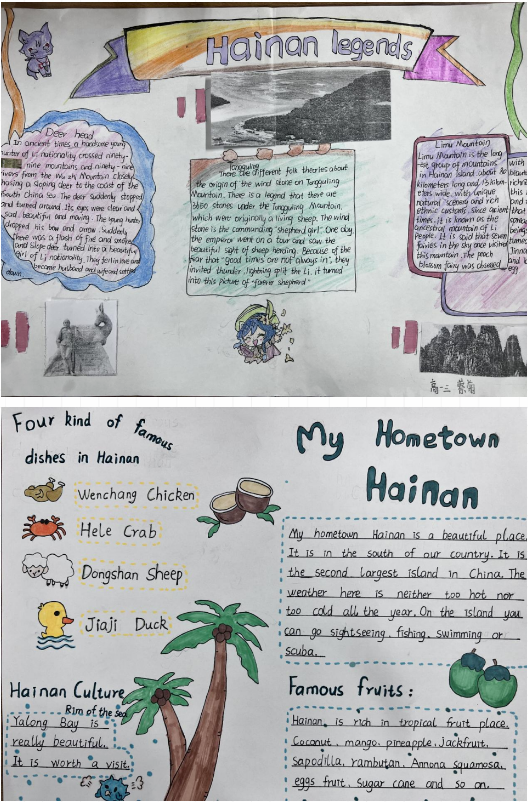 Hainan legends
Deer head
In ancient times a handsome young
hunter of Li nationality crossed ninety-
nine mountains and ninety-nine
rivers from the Wuzhi Mountain closely
chasing a sloping deer to the coast of the
South China Sea. The deer suddenly stopped
and turned around. Its eyes were clear and
sad, beautiful and moving. The young hunter
dropped his bow and arrow. Suddenly
there was a flash of fire and smoke
and slope deer turned into a beautiful
girl of Li nationality. They fell in love and
became husband and wife and settled
down
Tongguling
There are different folk theories about
the origin of the wind stone on Tongguling
Mountain. There is a legend that there are
3650 stones under the Tongguling Mountain,
which were originally a living sheep. The wind
stone is the commanding "shepherd girl". One day
the emperor went on a tour and saw the
beautiful sight of sheep herding. Because of the
fear that "good times are not always in", they
invited thunder, lightning split the Li, it turned
into this picture of "forever shepherd"
Limu Mountain
Limu Mountain is the long
est group of mountains
in Hainan island about
kilometers long and
wide, with unique
natural scenery and rich
ethnic customs, since ancient
times. It is known as the
ancestral mountain of Li
People. It is said that seven
fairies in the sky once visited
this mountain. The peach
blossom fairy was
with
being
and
egg
高一三
Four kind of famous
dishes in Hainan
Wenchang Chicken
Hele Crab
Dongshan Sheep
Jiaji Duck
Hainan Culture
Rim of the Sea
Yalong Bay is
really beautiful.
It is worth a visit.
My Hometown
Hainan
My hometown Hainan is a beautiful place.
It is in the south of our country. It is
the second largest island in China. The
weather here is neither too hot nor
too cold all the year. On the island you
can go sightseeing, fishing, swimming or
scuba.
Famous fruits:
Hainan is rich in tropical fruit place.
Coconut, mango, pineapple, Jackfruit,
sapodilla, rambutan, Annona squamosa,
eggs fruit, sugar cane and so on.